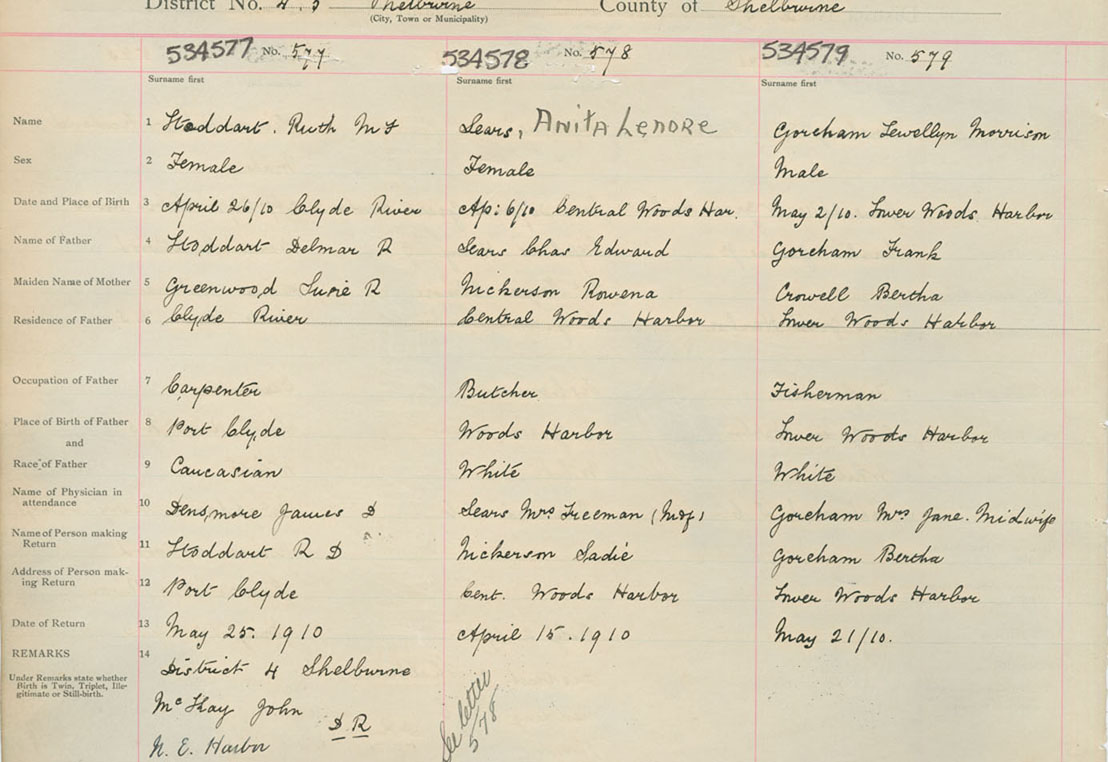 District No. 4, 5 Shelburne County of Shelburne
(City, Town or Municipality)
534577 No. 577 534578 No. 578 534579 No. 579
Surname first Surname first Surname first
Name 1 Stoddart. Ruth M F Sears, Anita Lenore Goreham Lewellyn Morrison
Sex 2 Female Female Male
Date and Place of Birth 3 April 26/10 Clyde River Ap: 6/10 Central Woods Har. May 2/10. Lower Woods Harbor
Name of Father 4 Stoddart Delmar R Sears Chas Edward Goreham Frank
Maiden Name of Mother 5 Greenwood Susie R Nickerson Rowena Crowell Bertha
Residence of Father 6 Clyde River Central Woods Harbor Lower Woods Harbor
Occupation of Father 7 Carpenter Butcher Fisherman
Place of Birth of Father 8 Port Clyde Woods Harbor Lower Woods Harbor
and
Race of Father 9 Caucasian White White
Name of Physician in
attendance 10 Densmore James D Sears Mrs Freeman (Mdf) Goreham Mrs Jane. Midwife
Name of Person making
Return 11 Stoddart R D Nickerson Sadie Goreham Bertha
Address of Person mak-
ing Return 12 Port Clyde Cent. Woods Harbor Lower Woods Harbor
Date of Return 13 May 25. 1910 April 15. 1910 May 21/10.
REMARKS 14 District 4 Shelburne
Under Remarks state whether
Birth is Twin, Triplet, Ille-
gitimate or Still-birth.
McKay John D R
N. E. Harbor
See letter
578